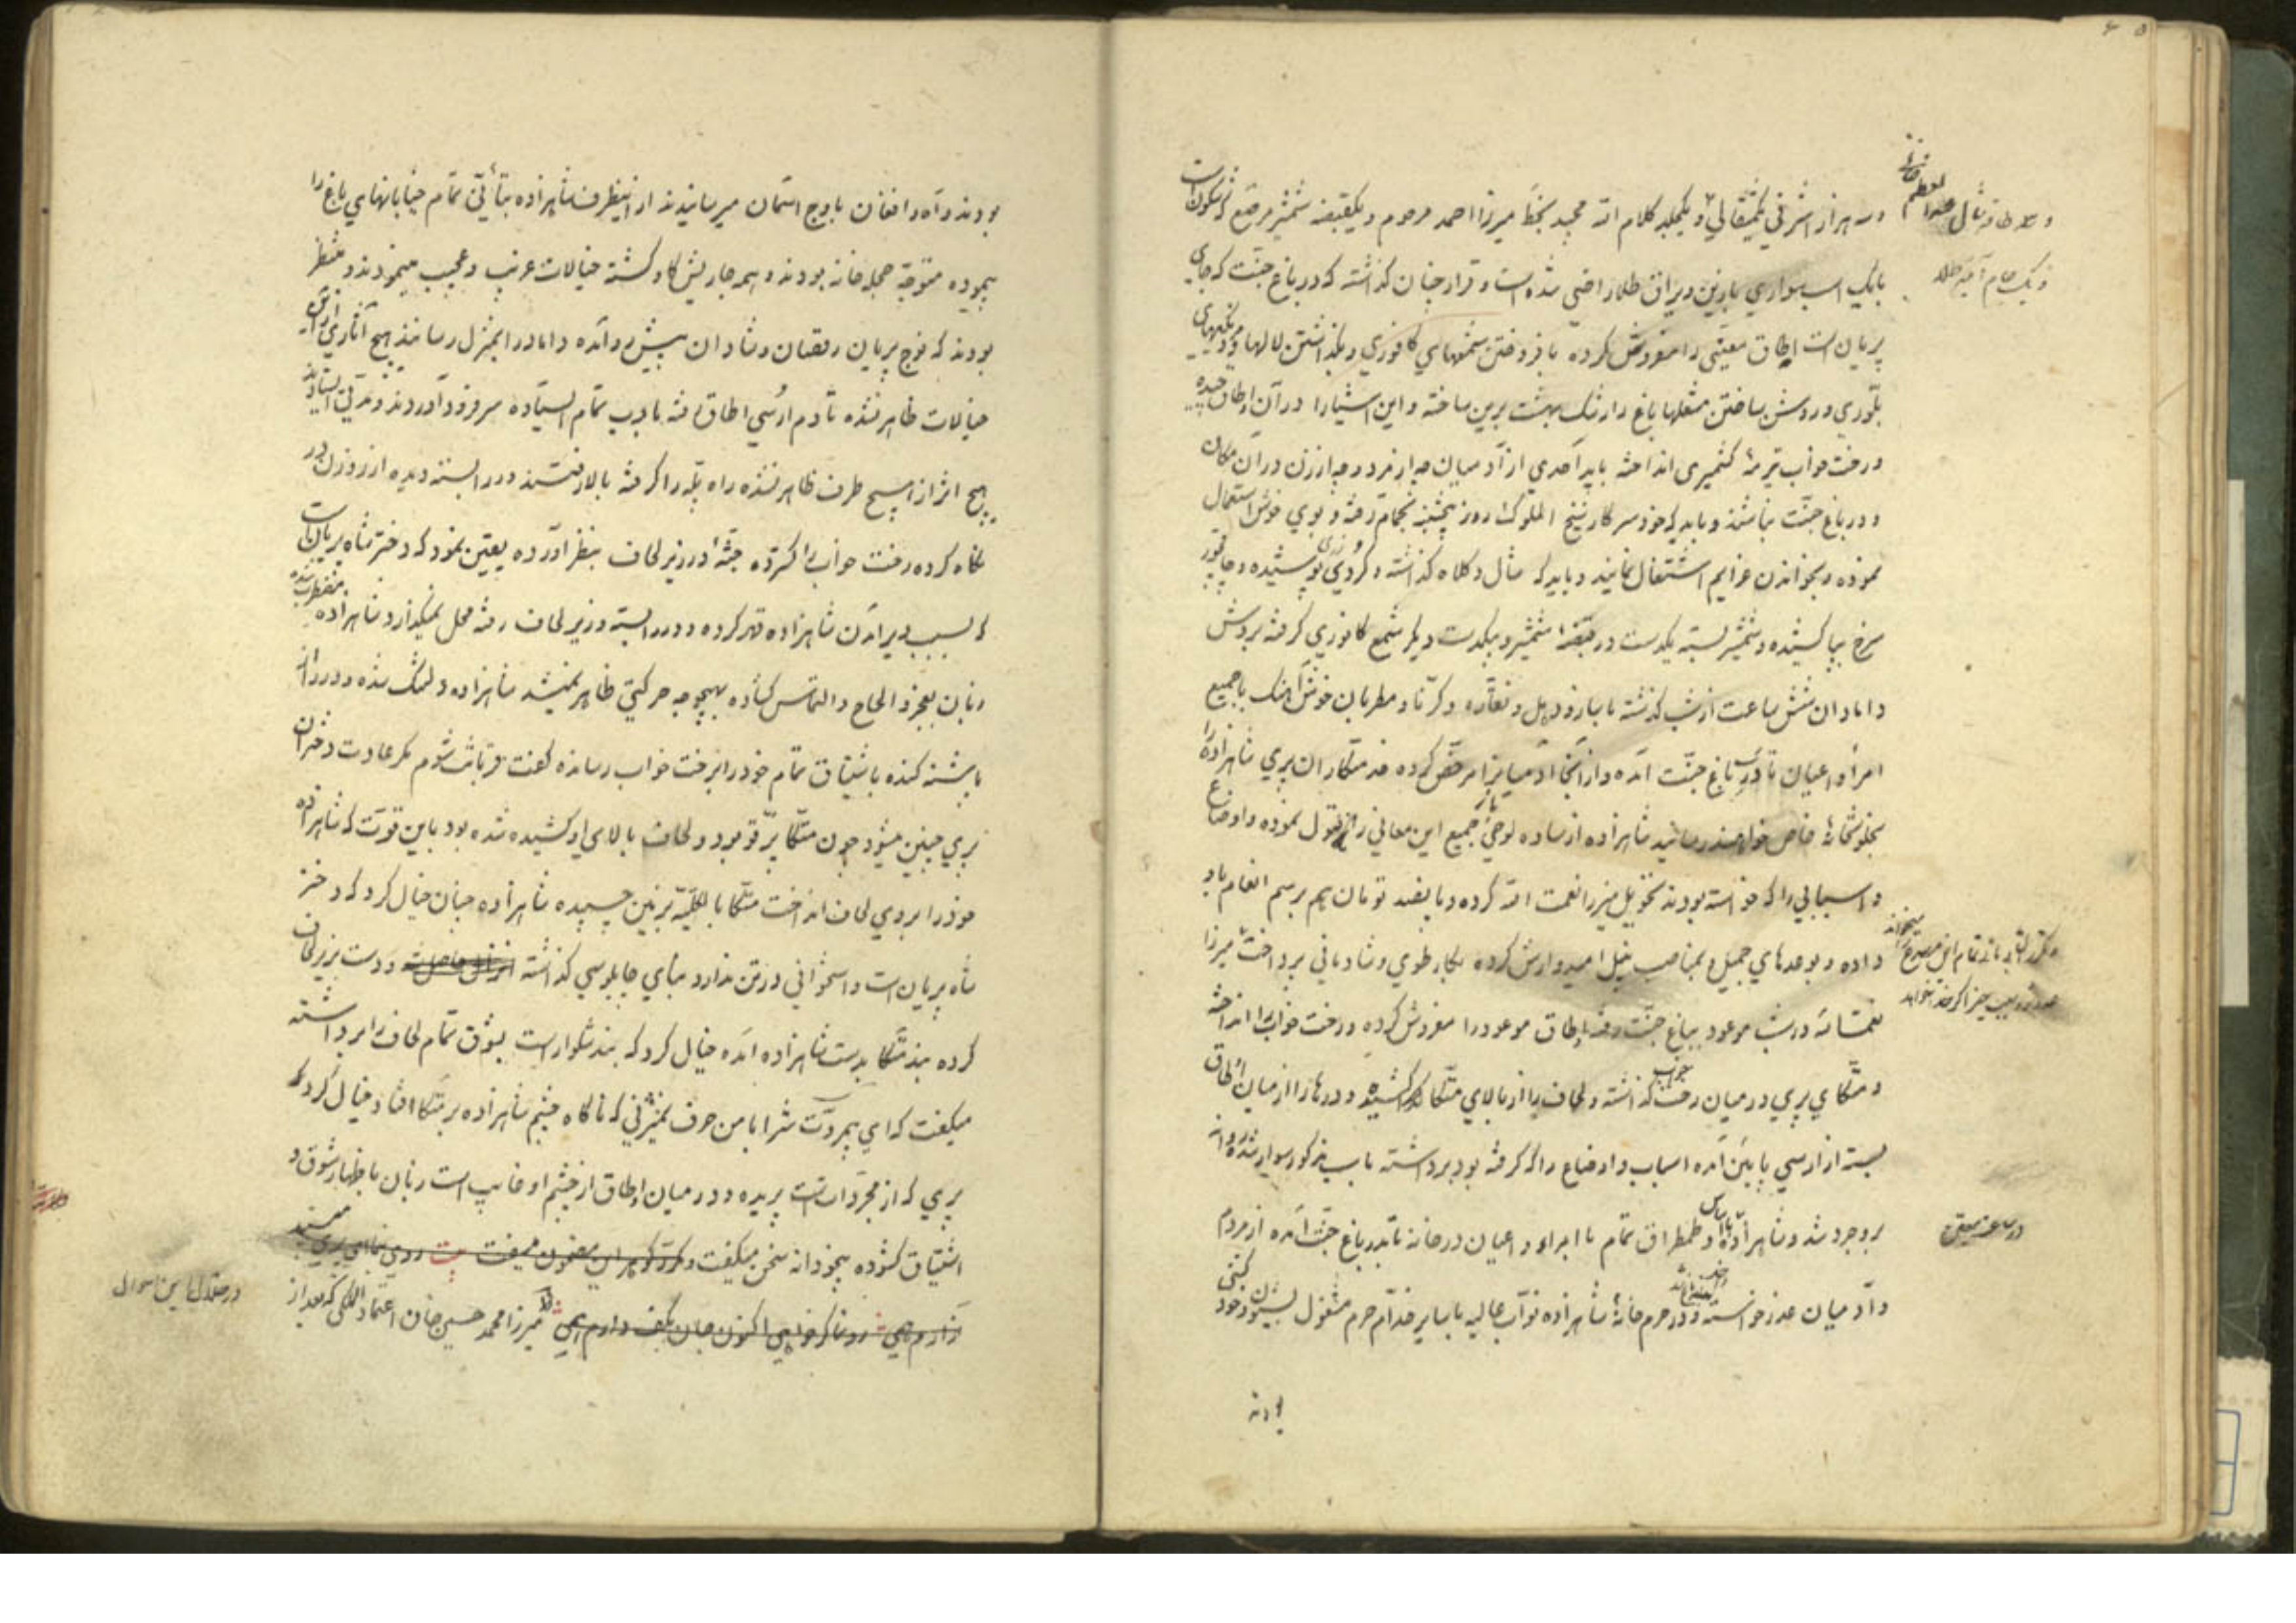 و سه هزار اشرفی یکمثقالی و یکجلد کلام الله مجید بخط میرزا احمد مرحوم و یکقبضه شمشیر مرصع
بایک اسب سواری بازین ویراق طلا راضی شده است و قرار چنان گذاشته که در باغ جنت که جای
پریان است اطاق معینی را مفروش کرده با فروختن شمعهای کافوری و بگذاشتن لالها و
بلوری و روشن ساختن مشعلها باغ را رشک بهشت برین ساخته و این اشیا را در آن اطاق چیده
و رخت خواب ترمهٔ کشمیری انداخته باید احدی از آدمیان چه از مرد و چه از زن در آن مکان
و در باغ جنت نباشند و باید که خود سرکار شیخ الملوک روز پنجشنبه بحمام رفته و بوی خوش استعمال
نموده و بخواندن عزایم اشتغال نمایند و باید که شال و کلاه گذاشته و کردی پوشیده و چاقچور
سرخ بپا کشیده و شمشیر بسته یکدست در قبضهٔ شمشیر و بیکدست دیگر شمع کافوری گرفته بروش
دامادان شش ساعت از شب گذشته با ساز و دهل و نقاره و کرنا و مطربان خوش آهنگ با جمیع
امرا و اعیان تا در باغ جنت آمده و از آنجا آدمیانرا مرخص کرده خدمتکاران پری شاهزاده را
بخلوتخانهٔ خاص خواهند رسانید شاهزاده از ساده لوحی جمیع این معانی را قبول نموده و اوضاع
و اسبابی را که خواسته بودند تحویل میرزا نعمت الله کرده و پانصد تومان هم برسم انعام باو
داده و بوعدهای جمیل بمناصب نبیل امیدوارش کرده بکار طوی و شادمانی پرداخت میرزا
نعمت الله در شب موعود بباغ جنت رفته اطاق موعود را مفروش کرده و رخت خواب را انداخته
و متکای پری در میان رخت خواب گذاشته و لحاف را از بالای متکا کشیده و درها را از میان اطاق
بسته از ارسی پایین آمده اسباب و اوضاع را که گرفته بود برداشته باسب مذکور سوار شده روانه
بروجرد شد و شاهزاده با ساس و طمطراق تمام با امراء و اعیان در خانه تا بدر باغ جنت آمده از مردم
و آدمیان عذر خواسته و در حرم خانهٔ شاهزاده نواب عالیه با سایر خدام حرم مشغول بشیون
بودند
بودند و آه و افغان باوج آسمان میرسانیدند از اینطرف شاهزاده بتأنی تمام خیابانهای باغ را
پیموده متوجه حجله خانه بودند و بهر جا ریش گاو گشته خیالات غریب و عجیب مینمودند و منتظر
بودند که فوج پریان رقصان و شادان پیش رو آمده داماد را بمنزل رسانند هیچ آثاری از این
خیالات ظاهر نشده تا دم ارسی اطاق رفته با ادب تمام ایستاده سر فرود آوردند و مدتی ایستادند
هیچ اثر از هیچ طرف ظاهر نشده راه پله را گرفته بالا رفتند در را بسته دیده از روزن در
نگاه کرده رخت خواب را گسترده جثهٔ در زیر لحاف بنظر آورده یقین نمود که دختر شاه پریان است
که بسبب دیر آمدن شاهزاده قهر کرده و در را بسته و زیر لحاف رفته محل نمیگذارد شاهزاده مضطرب شده
زبان بعجز و الحاح و التماس گشاده بهیچوجه حرکتی ظاهر نمیشد شاهزاده دلتنگ شده و در را از
پاشنه کنده باشتیاق تمام خود را برخت خواب رسانده گفت قربانت شوم مگر عادت دختران
پری چنین میشود چون متکا پر قو بود و لحاف بالای او کشیده شده بود باین قوت که شاهزاده
خود را بروی لحاف انداخت متکا بالکلیه بزمین چسبیده شاهزاده چنان خیال کرد که دختر
شاه پریان است و استخوانی در تن ندارد بنای چاپلوسی گذاشته و دست بزیر لحاف
کرده بند متکا بدست شاهزاده آمده خیال کرد که بند شلوار است بذوق تمام لحاف را برداشته
میگفت که ای بیمروت چرا با من حرف نمیزنی که ناگاه چشم شاهزاده بر متکا افتاد خیال کرد که
پری که از مجردات است پریده و در میان اطاق از چشم او غایب است زبان باظهار شوق و
اشتیاق گشوده بیخودانه سخن میگفت و مکرر گوهر این مضمون میسفت بیت روی بنما ای پری
رونما گر خواهی اکنون جان بکف دارم میرزا محمد حسین خان اعتماد الملکی که بعد از
در خلال این احوال